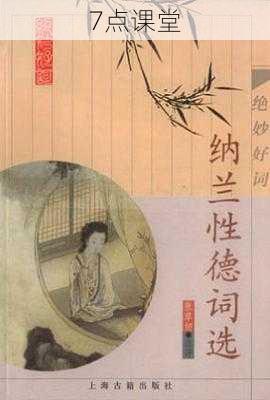 7点课堂
绝妙好词
纳兰性德词选
上海古籍出版社